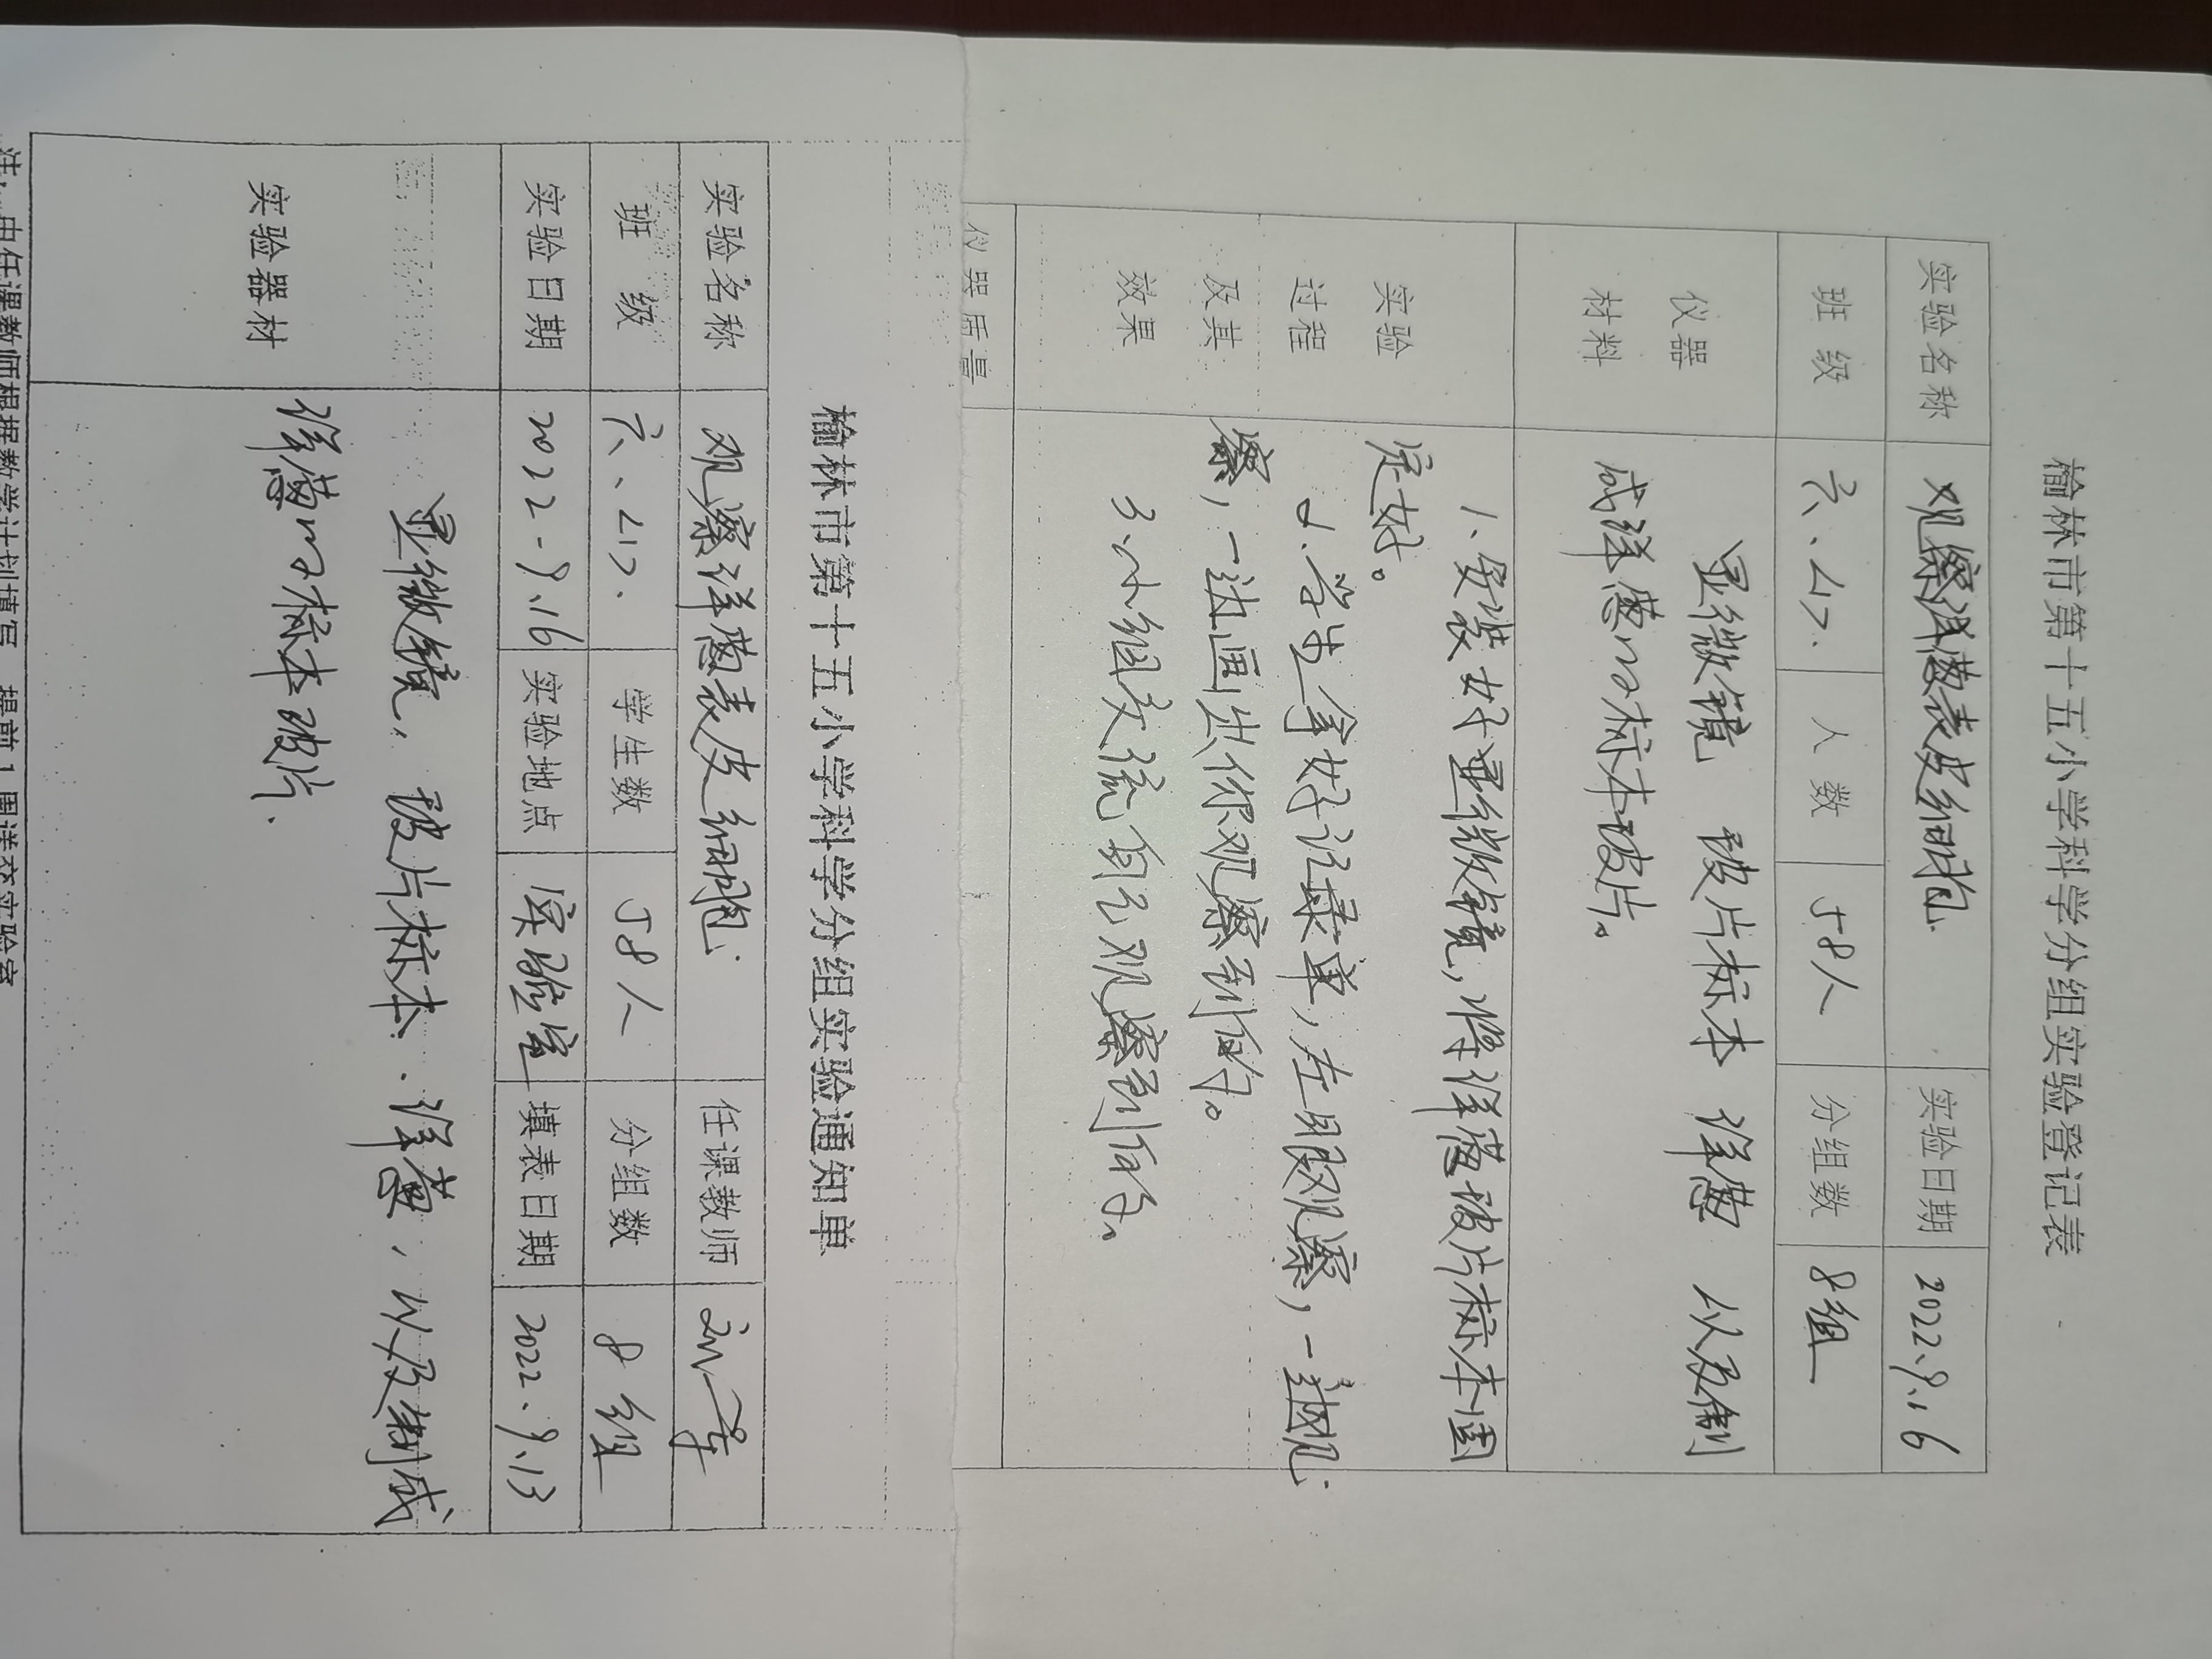 榆林市第十五小学科学分组实验登记表
实验名称 观察洋葱表皮细胞 实验日期 2022.9.16
班级 六、 人数 58人 分组数 8组
仪器
材料
显微镜 玻片标本 洋葱 以及制
成洋葱的标本玻片。
实验
过程
及其
效果
1、安装好显微镜,将洋葱玻片标本固
定好。
2.学生拿好记录单,左眼观察,一边观
察,一边画出你观察到的。
3.小组交流自己观察到的。
仪器质量
榆林市第十五小学科学分组实验通知单
实验名称 观察洋葱表皮细胞 任课教师
班级 六、 学生数 58人 分组数 8组
实验日期 2022-9.16 实验地点 实验室 填表日期 2022.9.13
实验器材
显微镜, 玻片标本. 洋葱,以及制成
洋葱的标本玻片.
注:由任课教师根据教学计划填写,提前1周送交实验室